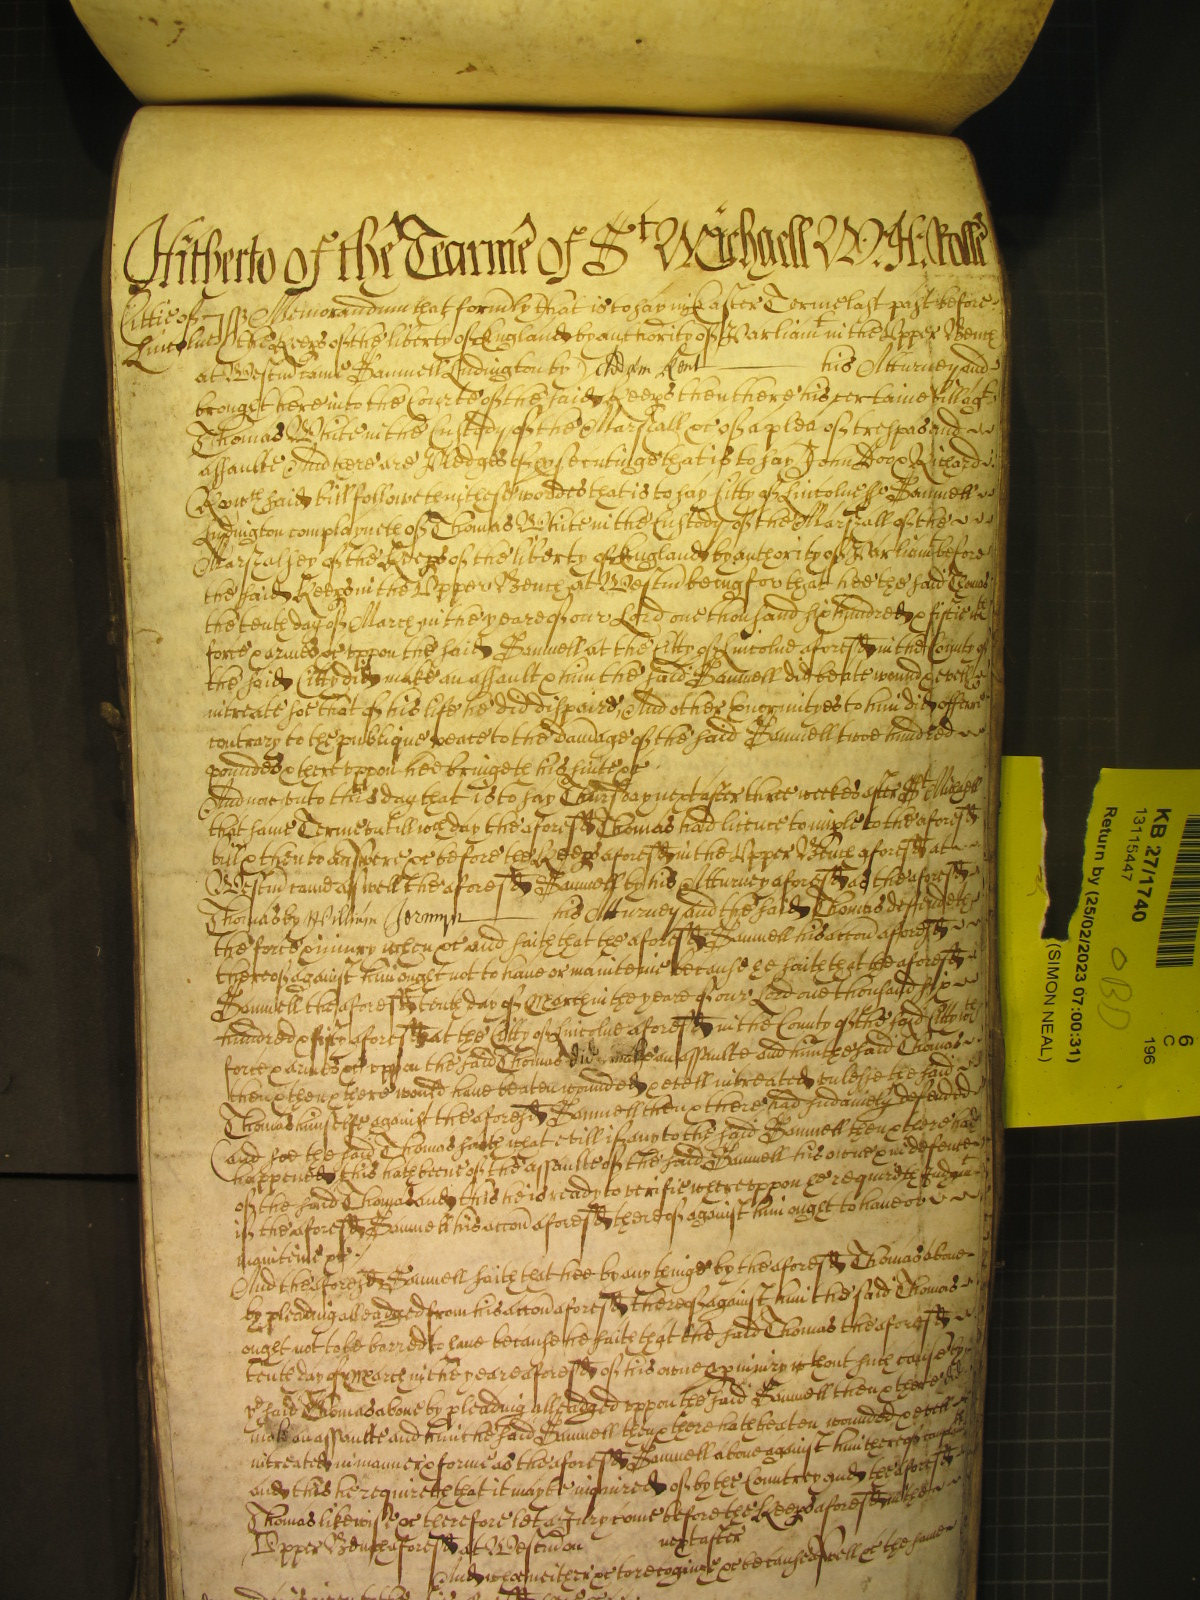 Hitherto of the Tearme of St Michaell W. H. Rolle
Cittie of Lincolne ss Memorandum that formerly that is to say in Easter Terme last past before
the Keepers of the liberty of England by authority of Parliamt in the Upper Bench
at Westm came Samuell Ludington by Adam Kent his Atturney and
brought here into the Courte of the said Keeps then there his certaine bill agt
Thomas White in the Custody of the Marshall &c of a plea of trespas and
assaulte And there are Pledges of psecutinge that is to say John Doo & Richard
Roo wch said bill followeth in these wordes that is to say Citty of Lincolne ss Samuell
Ludington complayneth of Thomas White in the Custody of the Marshall of the
Marshalsey of the Keeps of the liberty of England by authority of Parliamt before
the said Keeps in the Upper Bench at Westm being for that hee the said Thomas
the tenth day of March in the yeare of our Lord one thousand six hundred & fiftie wth
force & armes &c uppon the said Samuell at the Citty of Lincolne aforesd in the County of
the said Citty did make an assault & him the said Samuell did beate wound & evilly
intreate soe that of his life he did dispaire, And other enormityes to him did offer
contrary to the publique peace to the damage of the said Samuell twoe hundred
poundes & thereuppon hee bringeth his suite &c
And now unto this day that is to say Thursday next after three weekes after St Michaell
that same Terme untill wch day the aforesd Thomas had licence to imple to the aforesd
bill & then to answere &c before the Keeps aforesd in the Upper Bench aforesd at
Westm came aswell the aforesd Samuell by his Atturney aforesd as the aforesd
Thomas by William Jermyn his Atturney and the said Thomas defendeth
the force & iniury when &c and saith that the aforesd Samuell his accon aforesd
thereof against him ought not to have or mainteine because he saith that the aforesd
Samuell the aforesd tenth day of March in the yeare of our Lord one thousand six
hundred & fifty aforesd at the Citty of Lincolne aforesd in the County of the said Citty wth
force & armes &c uppon the said Thomas did make an assaulte and him the said Thomas
then & there would have beaten wounded & evill intreated unlesse the said
Thomas himselfe against the aforesd Samuell then & there had sudainely defended
And soe the said Thomas saith that evill if any to the said Samuell then & there had
happened this hath beene of the assaulte of the said Samuell his owne & in defence
of the said Thomas and this he is ready to verifie whereuppon he requireth Judgmt
if the aforesd Samuell his accon aforesd thereof against him ought to have or
mainteine &c
And the aforesd Samuell saith that hee by any thinge by the aforesd Thomas above
by pleading alleadged from his accon aforesd thereof against him the said Thomas
ought not to be barred to have because he saith that the said Thomas the aforesd
tenth day of March in the yeare aforesd of his owne iniury without such cause by
ye said Thomas above by pleading alleadged uppon the said Samuell then & there did
make an assaulte and him the said Samuell then & there hath beaten wounded & evill
intreated in manner & forme as the aforesd Samuell above against him thereof
and this he requireth that it may be inquired of by the Countrey and the aforesd
Thomas likewise &c therefore let a Jury come before the Keeps aforesd in the
Upper Bench aforesd at Westm on next after
And who neither &c to recognize &c because aswell &c the same
KB 27/1740
13115447
Return by (25/02/2023 07:00:31)
(SIMON NEAL)
6
C
196
OBD